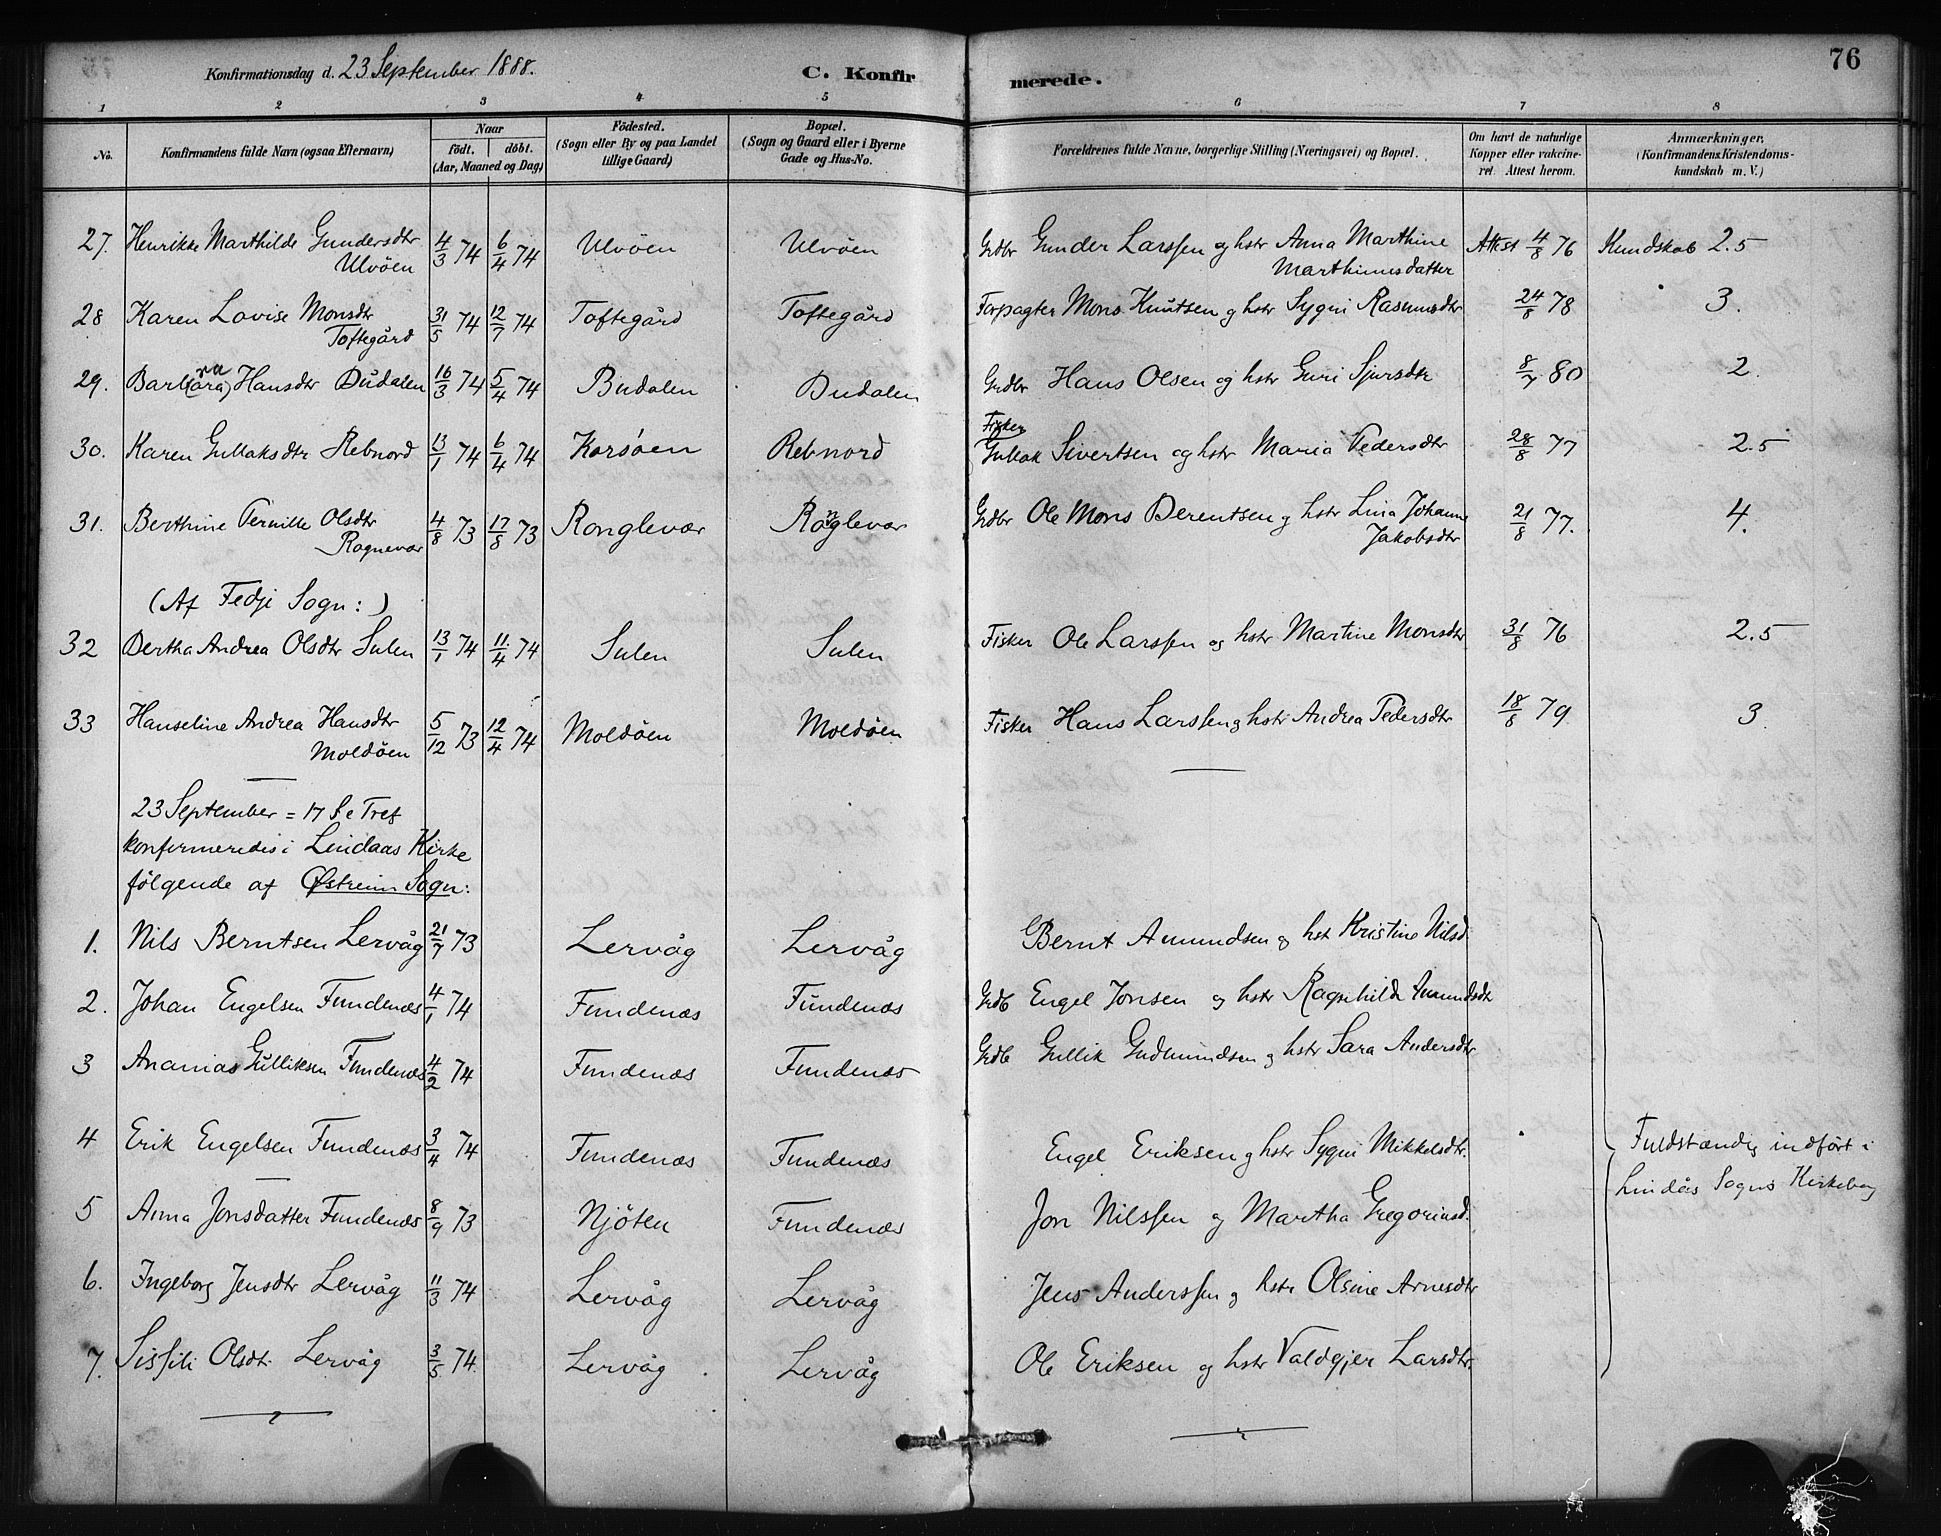 Konfirmationsdag d. 23 September 1888. C. Konfirmerede. 76
1 2 3 4 5 6 7 8
No. Konfirmandens fulde Navn (ogsaa Efternavn) Naar født. døbt. (Aar, Maaned og Dag) Fødested. (Sogn eller By og paa Landet tillige Gaard) Bopæl. (Sogn og Gaard eller i Byerne Gade og Hus-No. Forældrenes fulde Navne, borgerlige Stilling (Næringsvei) og Bopæl. Om havt de naturlige Kopper eller vakcineret. Attest herom. Anmærkninger. (Konfirmandens Kristendomskundskab m. V.)
27. Henrikke Marthilde Gundersdtr 4/3 74 6/4 74 Ulvöen Ulvöen Grdbr Gunder Larssen og hstr Anna Marthine Attest 4/8 76 Kundskab 2.5
Ulvöen Marthinusdatter
28 Karen Lovise Monsdtr 31/5 74 12/7 74 Toftegård Toftegård Forpagter Mons Knutsen og hstr Sygni Rasmusdtr 24/8 78 3.
Toftegård
29. Barbara Hansdtr Dudalen 16/3 74 5/4 74 Budalen Dudalen Grdbr Hans Olsen og hstr Guri Sjursdtr 8/7 80 2.
30. Karen Gullaksdtr Rebnord 13/1 74 6/4 74 Korsöen Rebnord Fisker Gullak Sivertsen og hstr Maria Pedersdtr 28/8 77 2.5
31. Berthine Pernille Olsdtr 4/8 73 17/8 73 Ronglevær Ronglevær Grdbr Ole Mons Berentsen og hstr Lina Johanne 21/8 77. 4.
Rognevær Jakobsdtr
(Af Fedje Sogn:)
32 Bertha Andrea Olsdtr Sulen 13/1 74 11./4 74 Sulen Sulen Fisker Ole Larssen og hstr Martine Monsdtr 31/8 76 2.5
33 Hanseline Andrea Hansdtr 5/12 73 12/4 74 Moldöen Moldöen Fisker Hans Larssen og hstr Andrea Pedersdtr 18/8 79 3
Moldöen
23 September = 17 S e Tref
konfirmeredes i Lindaas Kirke
følgende af Østreim Sogn:
1. Nils Berntsen Lervåg 21/7 73 Lervåg Lervåg Bernt Amundsen og hst Kristine Nilsd
2. Johan Engelsen Fundenæs 4/1 74 Fundenæs Fundenæs Grdb Engel Jonsen og hstr Ragnhilde Amundsdt
3 Ananias Gulliksen Fundenæs 4/2 74 Fundenæs Fundenæs Grdb Gullik Gudmundsen og hstr Sara Andersdtr
4 Erik Engelsen Fundenæs 3/4 74 Fundenæs Fundenæs Engel Eriksen og hstr Sygni Mikkelsdtr. Fuldstændig indført i
5 Anna Jonsdatter Fundenæs 8/9 73 Njöten Fundenæs Jon Nilssen og Martha Gregoriusd. Lindås Sogns Kirkebog
6. Ingeborg Jensdtr Lervåg 11/3 74 Lervåg Lervåg Jens Anderssen og hstr Olsine Arnesdtr
7. Sissili Olsdt. Lervåg 3/5 74 Lervåg Lervåg Ole Eriksen og hstr Valdgjer Larsdtr.